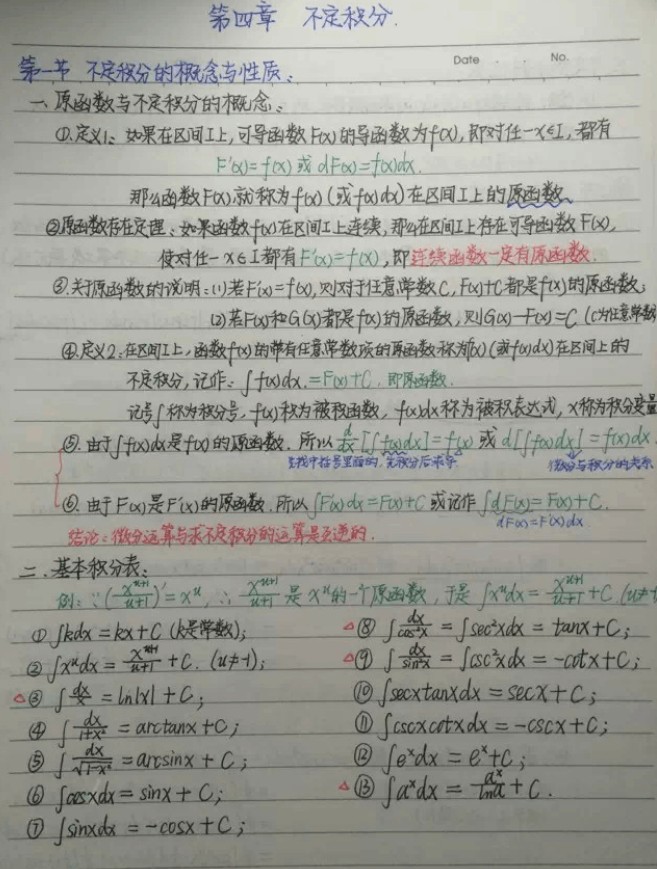 第四章 不定积分.
Date No.
第一节 不定积分的概念与性质:
一、原函数与不定积分的概念:
①.定义1: 如果在区间I上, 可导函数F(x)的导函数为f(x), 即对任一x∈I, 都有
F'(x)=f(x) 或 dF(x)=f(x)dx.
那么函数F(x)就称为f(x)(或f(x)dx)在区间I上的原函数.
②原函数存在定理: 如果函数f(x)在区间I上连续, 那么在区间I上存在可导函数F(x),
使对任一x∈I都有F'(x)=f(x), 即连续函数一定有原函数.
③.关于原函数的说明: (1)若F'(x)=f(x), 则对于任意常数C, F(x)+C都是f(x)的原函数;
(2)若F(x)和G(x)都是f(x)的原函数, 则G(x)-F(x)=C (C为任意常数
④.定义2: 在区间I上, 函数f(x)的带有任意常数项的原函数称为f(x)(或f(x)dx)在区间上的
不定积分, 记作: ∫f(x)dx.=F(x)+C. 即原函数.
记号∫称为积分号, f(x)称为被积函数, f(x)dx称为被积表达式, x称为积分变量
⑤. 由于∫f(x)dx是f(x)的原函数. 所以 d/dx[∫f(x)dx]=f(x) 或 d[∫f(x)dx]=f(x)dx.
先找中括号里面的, 先积分后求导. 微分与积分的关系
⑥. 由于F(x)是F'(x)的原函数. 所以∫F'(x)dx=F(x)+C 或记作 ∫dF(x)=F(x)+C.
dF(x)=F'(x)dx
结论: 微分运算与求不定积分的运算是互逆的.
二. 基本积分表:
例: ∵(x^(u+1)/(u+1))'=x^u, ∴ x^(u+1)/(u+1) 是x^u的一个原函数, 于是 ∫x^u dx=x^(u+1)/(u+1)+C (u≠-1
① ∫kdx=kx+C (k是常数);
② ∫x^u dx=x^(u+1)/(u+1)+C. (u≠-1);
△③ ∫dx/x=ln|x|+C;
④ ∫dx/(1+x²)=arctanx+C;
⑤ ∫dx/√(1-x²)=arcsinx+C;
⑥ ∫cosxdx=sinx+C;
⑦ ∫sinxdx=-cosx+C;
△⑧ ∫dx/cos²x=∫sec²xdx=tanx+C;
△⑨ ∫dx/sin²x=∫csc²xdx=-cotx+C;
⑩ ∫secxtanxdx=secx+C;
⑪ ∫cscxcotxdx=-cscx+C;
⑫ ∫e^x dx=e^x+C;
△⑬ ∫a^x dx=a^x/lna+C.